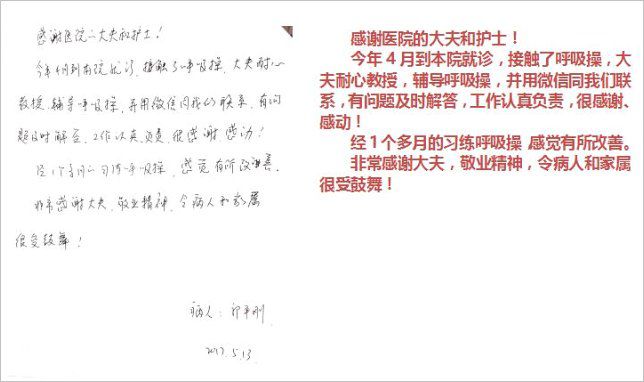 感谢医院的大夫和护士！
今年4月到本院就诊,接触了呼吸操,大夫耐心
教授,辅导呼吸操,并用微信同我们联系,有问
题及时解答,工作认真负责 很感谢感动！
经1个多月的习练呼吸操,感觉有所改善.
非常感谢大夫,敬业精神,令病人和家属
很受鼓舞！
病人：
2017.5.13.
感谢医院的大夫和护士！
今年４月到本院就诊，接触了呼吸操，大
夫耐心教授，辅导呼吸操，并用微信同我们联
系，有问题及时解答，工作认真负责，很感谢、
感动！
经１个多月的习练呼吸操 感觉有所改善。
非常感谢大夫，敬业精神，令病人和家属
很受鼓舞！